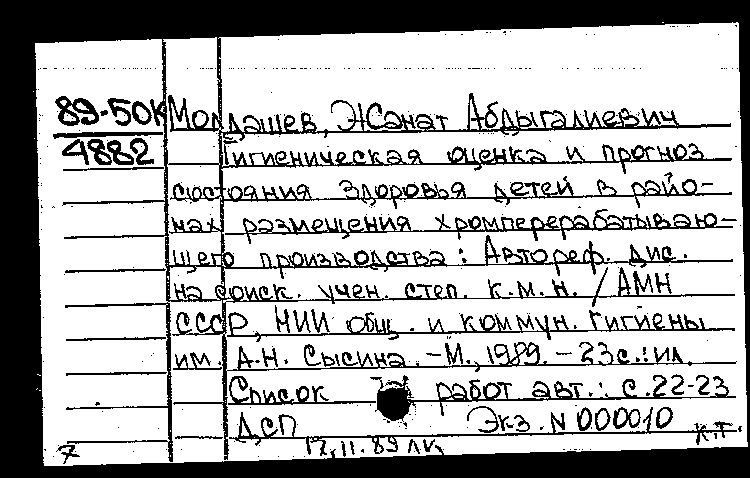 89-50К Молдашев, Жанат Абдыгалиевич
4882 Гигиеническая оценка и прогноз
состояния здоровья детей в райо-
нах размещения хромперерабатываю-
щего производства : Автореф. дис.
на соиск. учен. степ. к.м.н. / АМН
СССР, НИИ общ. и коммун. гигиены
им. А.Н. Сысина. - М., 1989. - 23с.: ил.
Список работ авт.: с.22-23
ДСП Экз. N 000010
7 17.11.89 лк, К.Т.